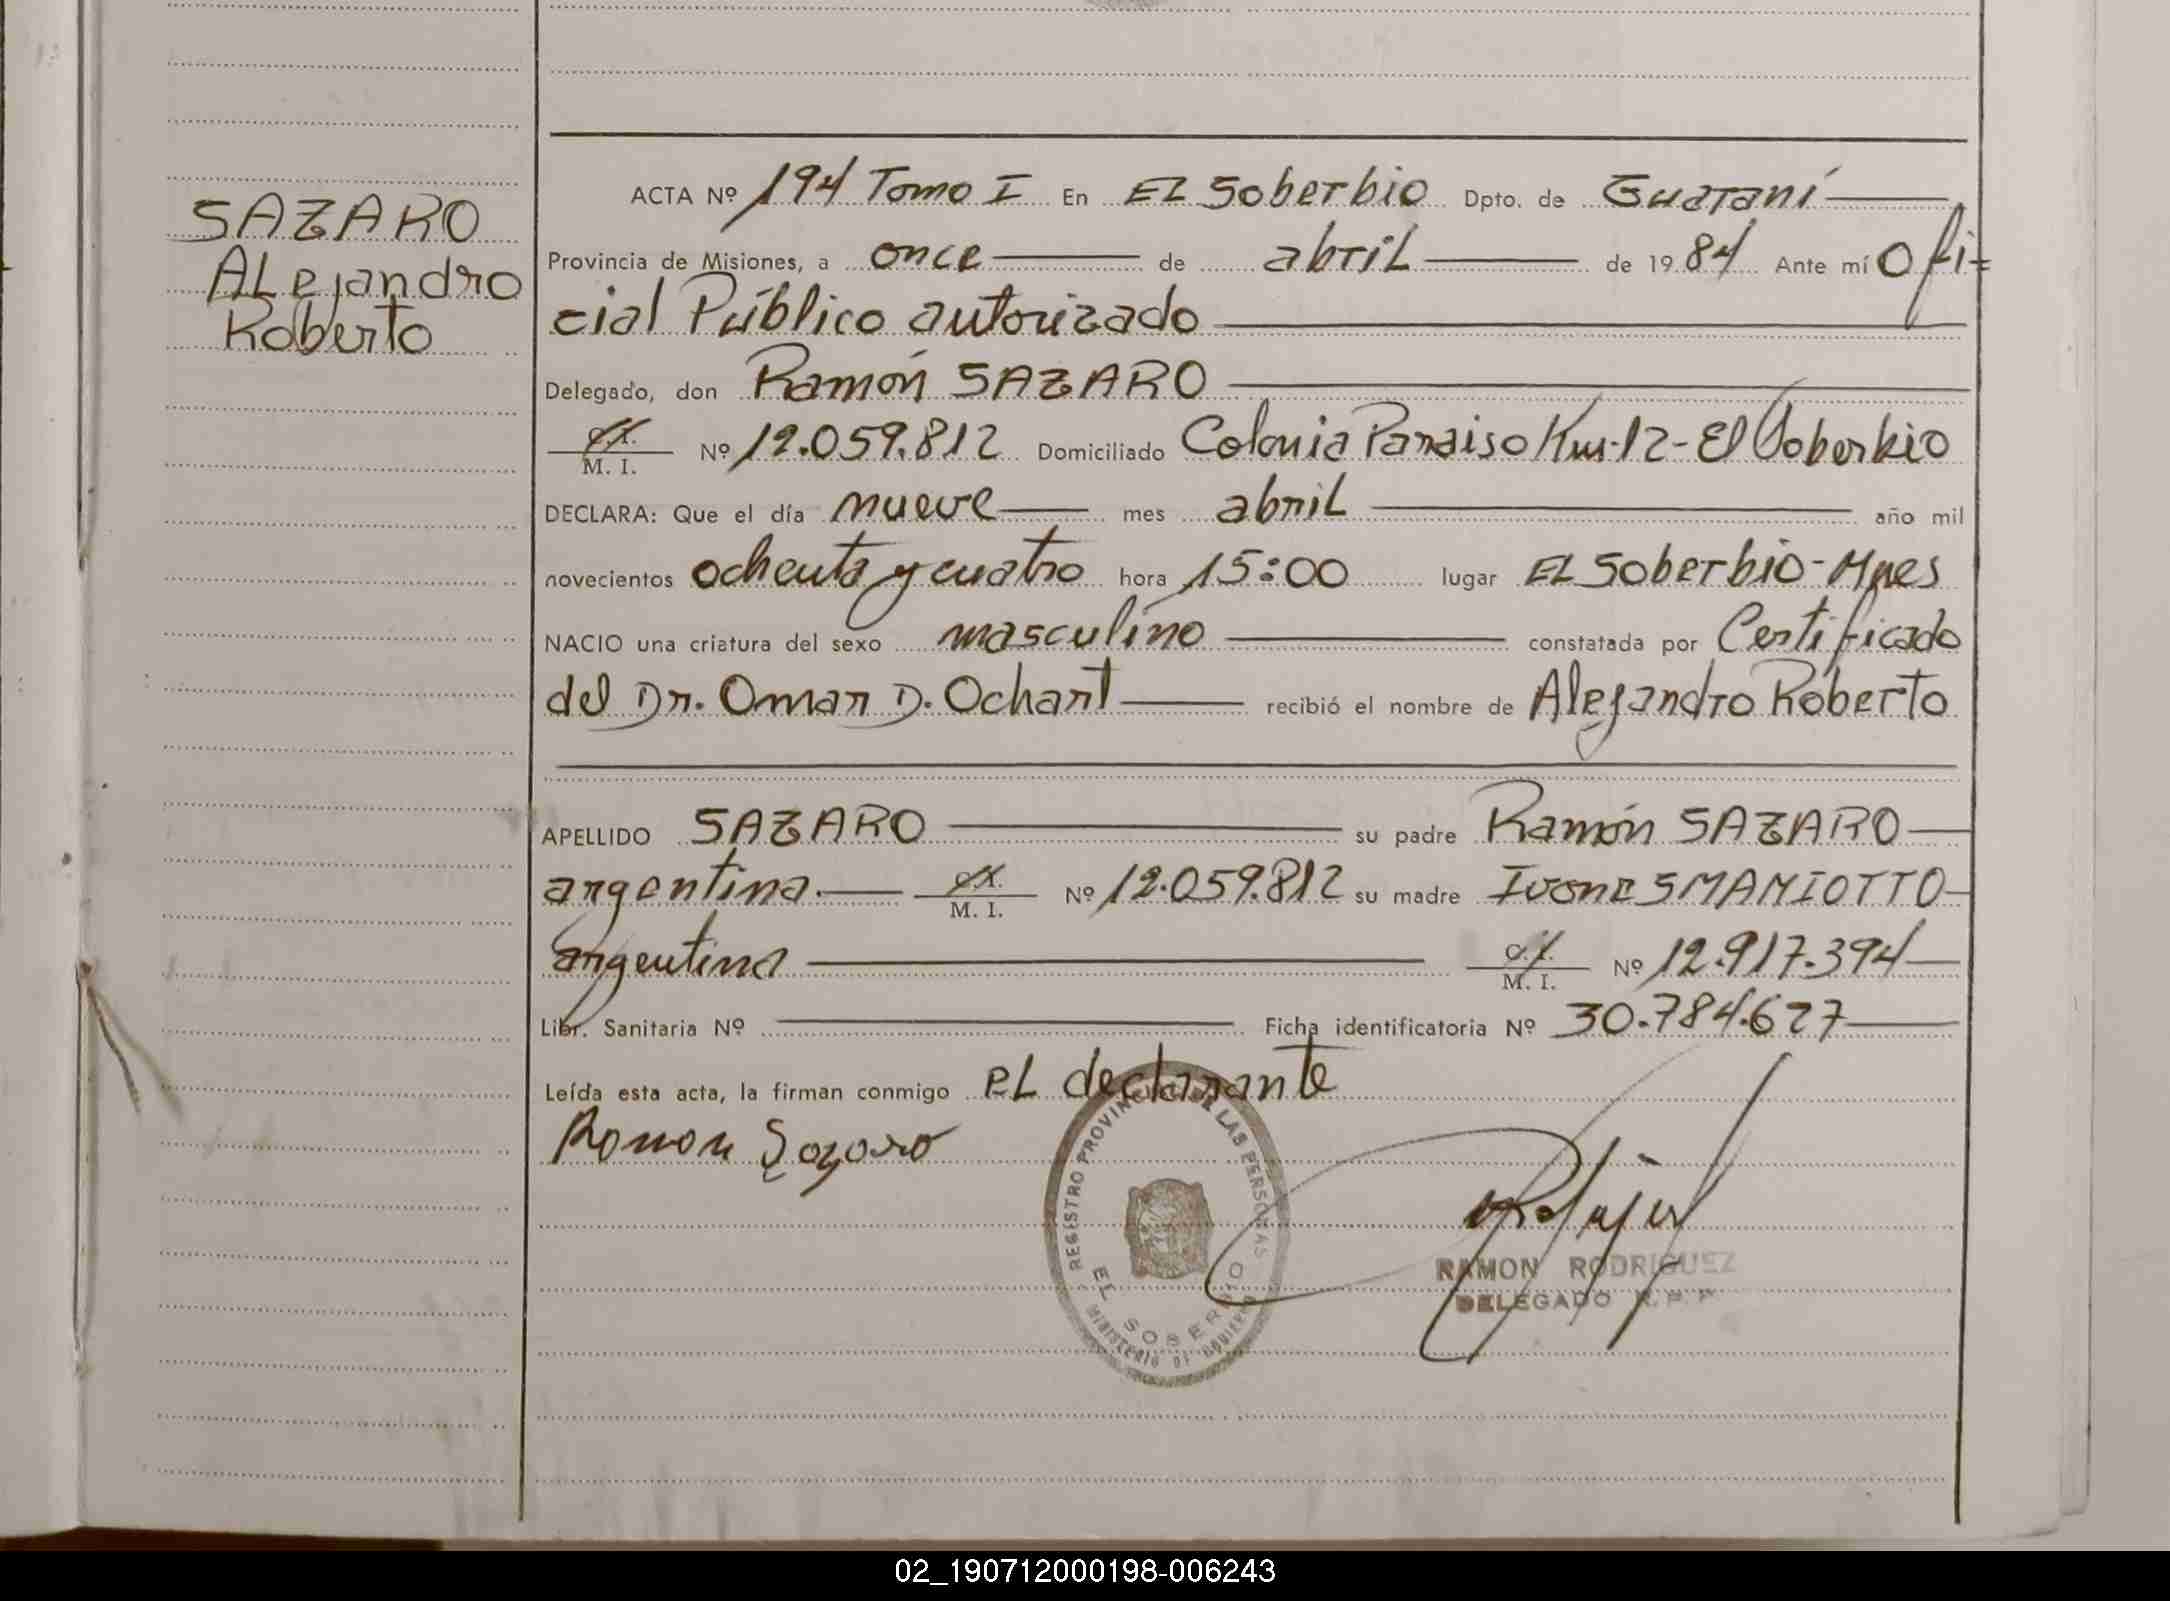 SAZARO
Alejandro
Roberto
ACTA Nº 194 Tomo I En El Soberbio Dpto. de Guaraní
Provincia de Misiones, a once de abril de 1984 Ante mí Ofi=
cial Público autorizado
Delegado, don Ramón SAZARO
C.I.
M. I. Nº 12.059.812 Domiciliado Colonia Paraiso Km-12-El Soberbio
DECLARA: Que el día nueve mes abril año mil
novecientos ochenta y cuatro hora 15:00 lugar El Soberbio-Mnes
NACIO una criatura del sexo masculino constatada por Certificado
del Dr. Omar D. Ochant recibió el nombre de Alejandro Roberto
APELLIDO SAZARO su padre Ramón SAZARO
argentina. C.I.
M. I. Nº 12.059.812 su madre Ivone SMANIOTTO
argentina C.I.
M. I. Nº 12.917.394
Libr. Sanitaria Nº Ficha identificatoria Nº 30.784.627
Leída esta acta, la firman conmigo el declarante
Ramon Sazaro
REGISTRO PROVINCIAL DE LAS PERSONAS
EL SOBERBIO
MINISTERIO DE GOBIERNO
RAMON RODRIGUEZ
DELEGADO R.P.P.
02_190712000198-006243